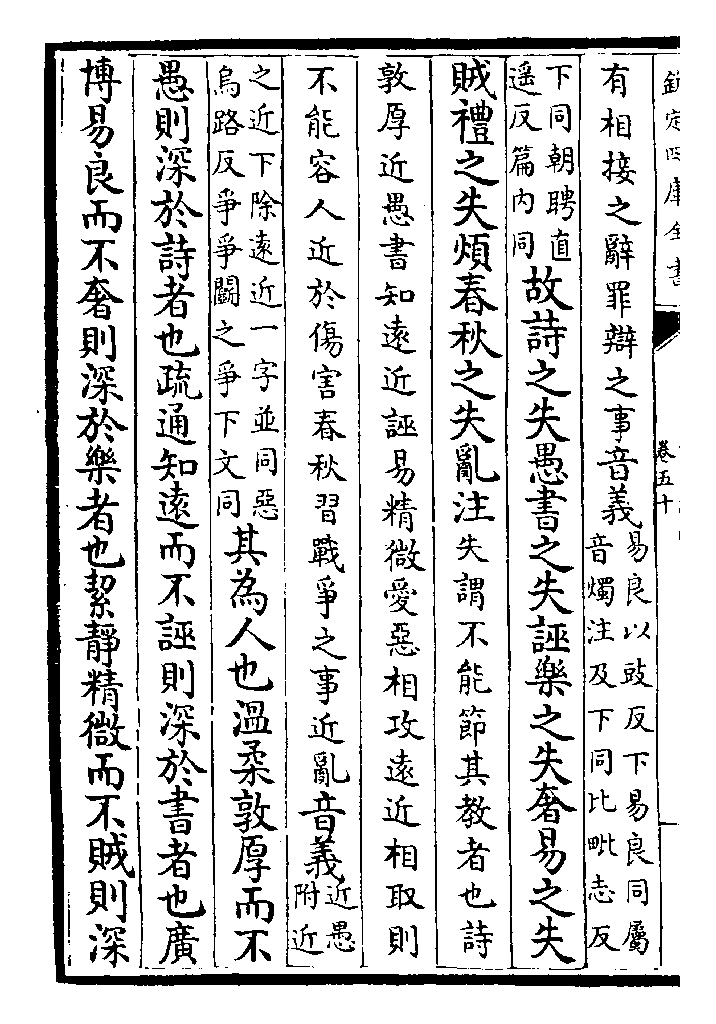 欽定四庫全書
卷五十
有相接之辭罪辯之事音義易良以豉反下易良同屬
音燭注及下同比毗志反
下同朝聘直
遥反篇内同故詩之失愚書之失誣樂之失奢易之失
賊禮之失煩春秋之失亂注失謂不能節其教者也詩
敦厚近愚書知遠近誣易精微愛惡相攻遠近相取則
不能容人近於傷害春秋習戰爭之事近亂音義近愚
附近
之近下除遠近一字並同惡
烏路反爭爭鬬之爭下文同其為人也溫柔敦厚而不
愚則深於詩者也疏通知遠而不誣則深於書者也廣
博易良而不奢則深於樂者也絜靜精微而不賊則深